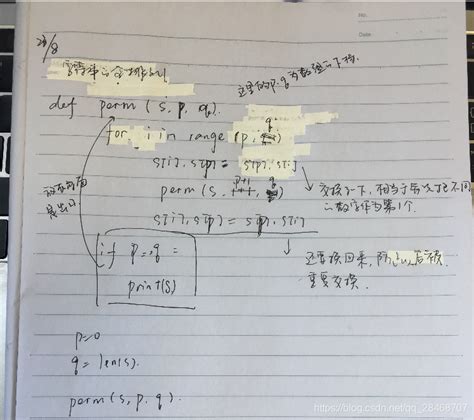 No.
Date
24/8
字符串的全排列
这里的p,q为数组的下标
def perm (s, p, q):
for i in range (p, q)
s[i], s[p] = s[p], s[i]
perm (s, p+1, q)
s[i], s[p] = s[p], s[i]
交换一下，相当于每次把不同
的数字作为第1个.
还要换回来，防止以后被
重复交换.
if p == q =
print(s)
p=0
q = len(s).
perm (s, p, q).
https://blog.csdn.net/qq_28468707